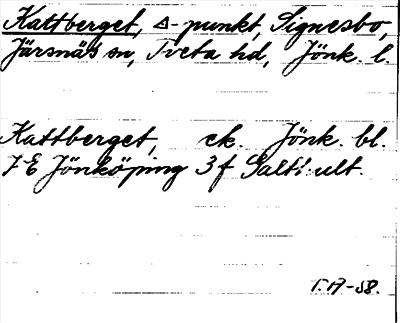 Kattberget, Δ-punkt, Signesbo,
Järsnäs sn, Tveta hd, Jönk. l.
Kattberget, ek. Jönk. bl.
7 E Jönköping 3f Saltí:ult.
T.A-58.